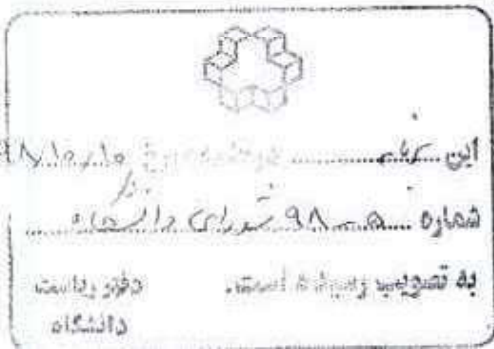 این ... در جلسه مورخ ۹۸،۱۰،۱۰
شماره ... ۹۸ شورای دانشگاه
به تصویب رسیده است.
دفتر ریاست
دانشگاه